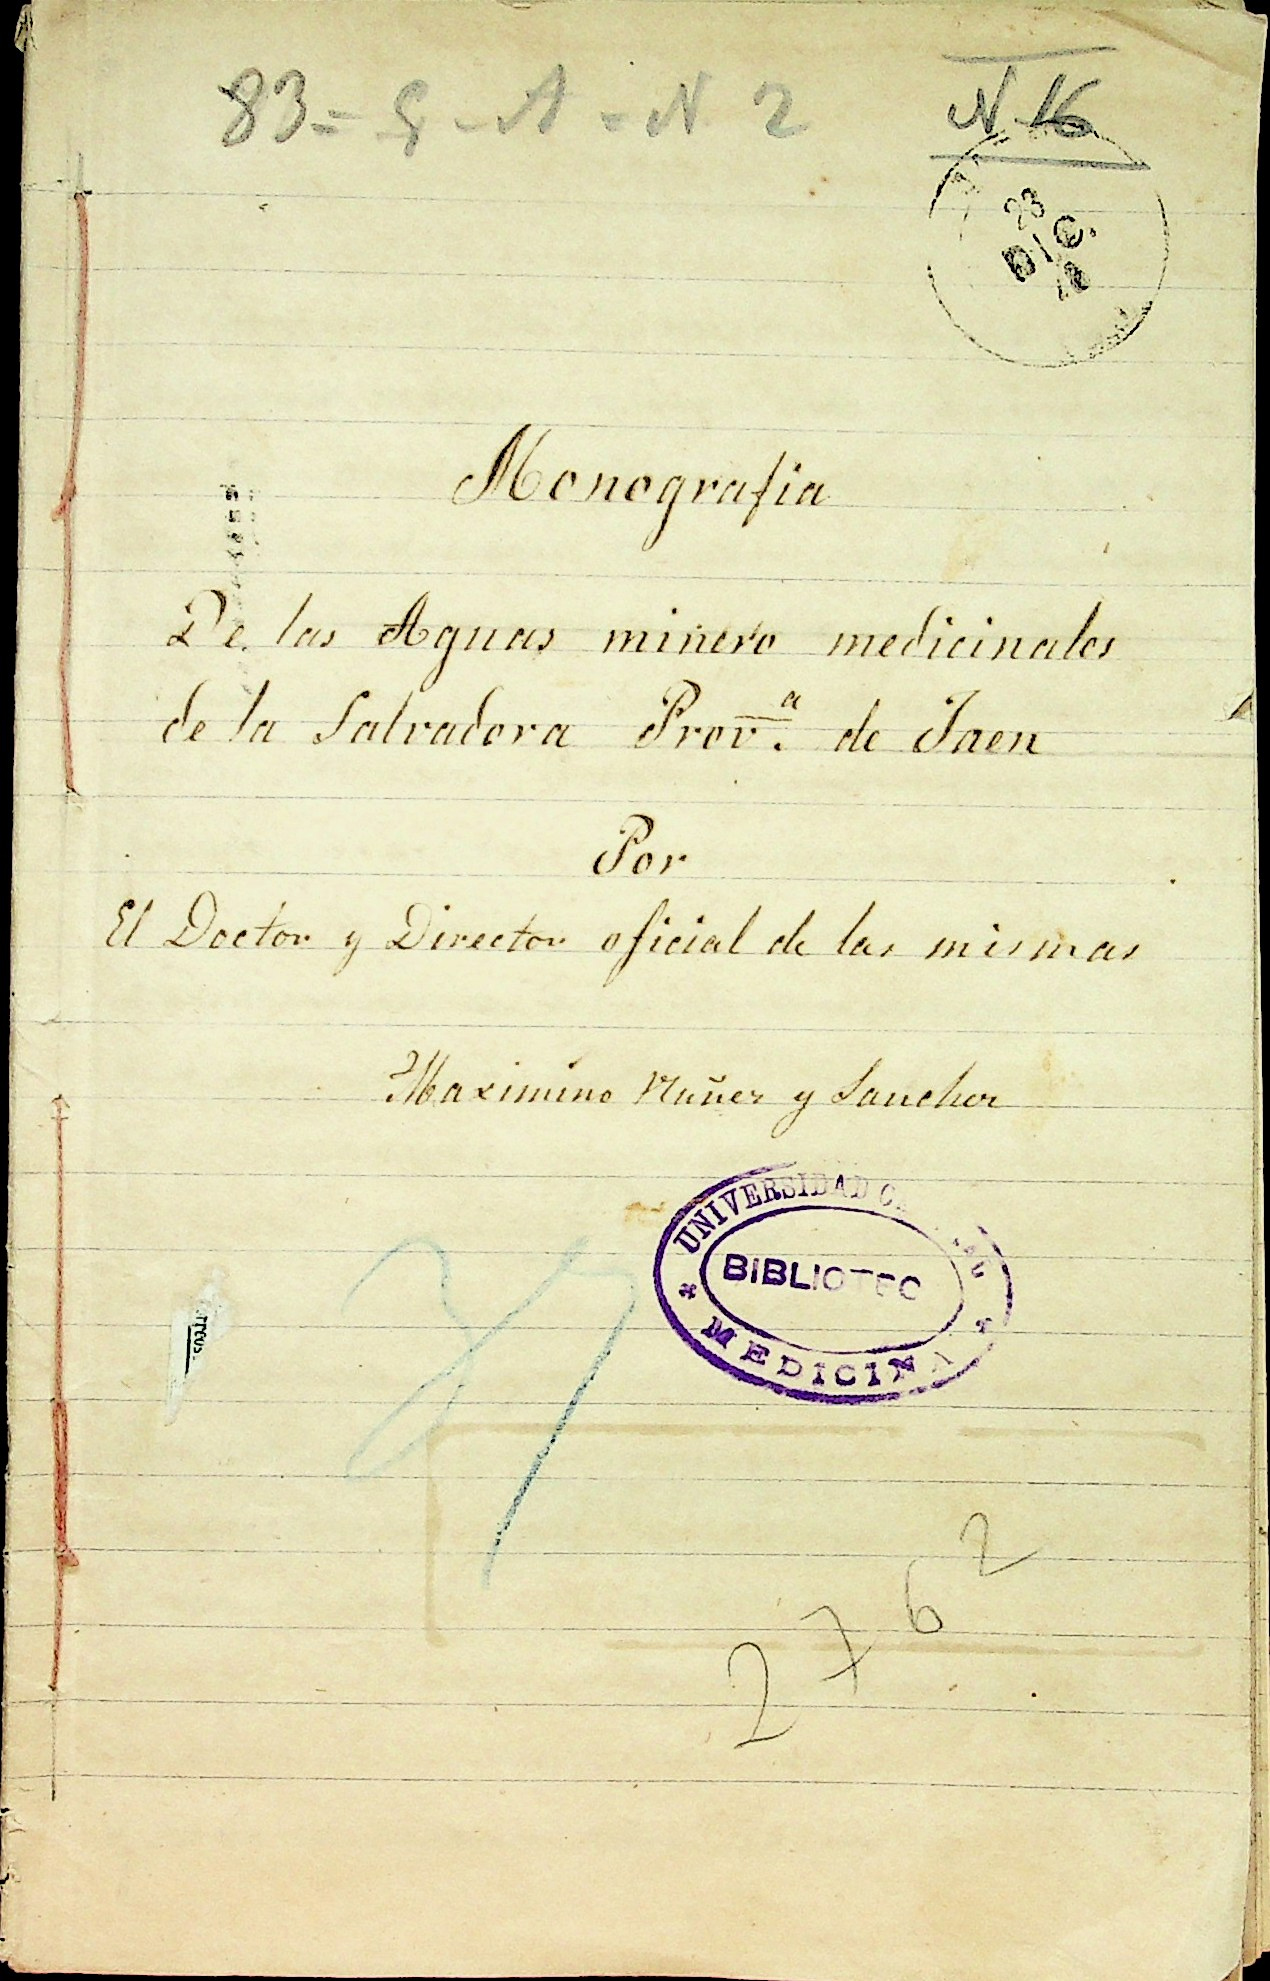 83 = G - A = N 2
N 16
23
DIC.
Monografia
De las Aguas minero medicinales
de la Salvadora Prov.ª de Jaen
Por
El Doctor y Director oficial de las mismas
Maximino Nuñez y Sanchez
UNIVERSIDAD
BIBLIOTEC
MEDICINA
2762